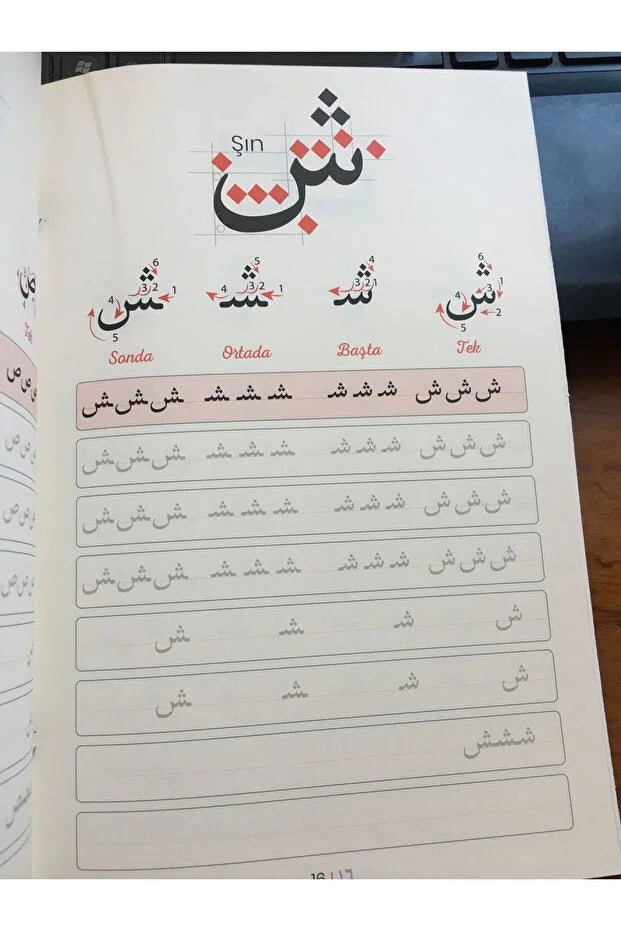 Şın
ش
ش شـ ـشـ ـش
Sonda Ortada Başta Tek
ش ش ش شـ شـ شـ ـشـ ـشـ ـشـ ـش ـش ـش
ش ش ش شـ شـ شـ ـشـ ـشـ ـشـ ـش ـش ـش
ش ش ش شـ شـ شـ ـشـ ـشـ ـشـ ـش ـش ـش
ش ش ش شـ شـ شـ ـشـ ـشـ ـشـ ـش ـش ـش
ش شـ ـشـ ـش
ش شـ ـشـ ـش
ششش
16 | ١٦